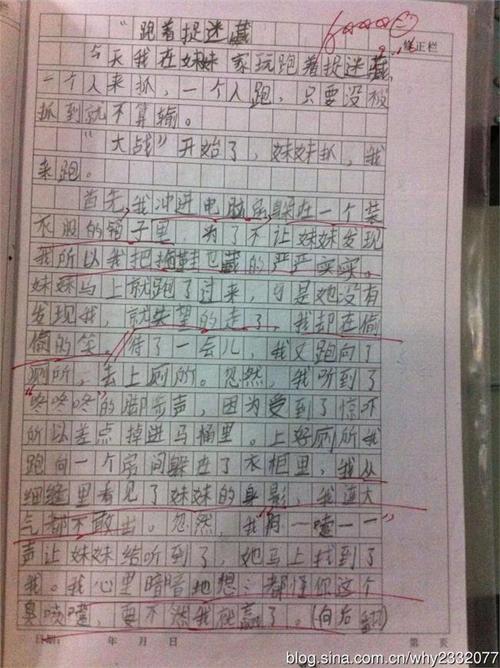 “跑着捉迷藏
修正栏
今天我在妹妹家玩跑着捉迷藏,
一个人来抓，一个人跑，只要没被
抓到就不算输。
“大战”开始了，妹妹抓，我
来跑。
首先，我冲进电脑房躲在一个装
衣服的锁子里，为了不让妹妹发现
我所以我把拖鞋也藏的严严实实。
妹妹马上就跑了过来，可是她没有
发现我，就失望的走了，我却在偷
偷的笑。待了一会儿，我又跑向了
厕所，去上厕所。忽然，我听到了
“咚咚咚”的脚步声，因为受到了惊吓
所以差点掉进马桶里。上好厕所我
跑向一个房间躲在了衣柜里，我从
细缝里看见了妹妹的身影，我连大
气都不敢出。忽然，我“阿一嚏一一”
声让妹妹给听到了，她马上找到了
我。我心里暗暗地想：都怪你这个
臭喷嚏，要不然我就赢了。(向后翻)
日期： 年 月 日 第 页
blog.sina.com.cn/why2332077